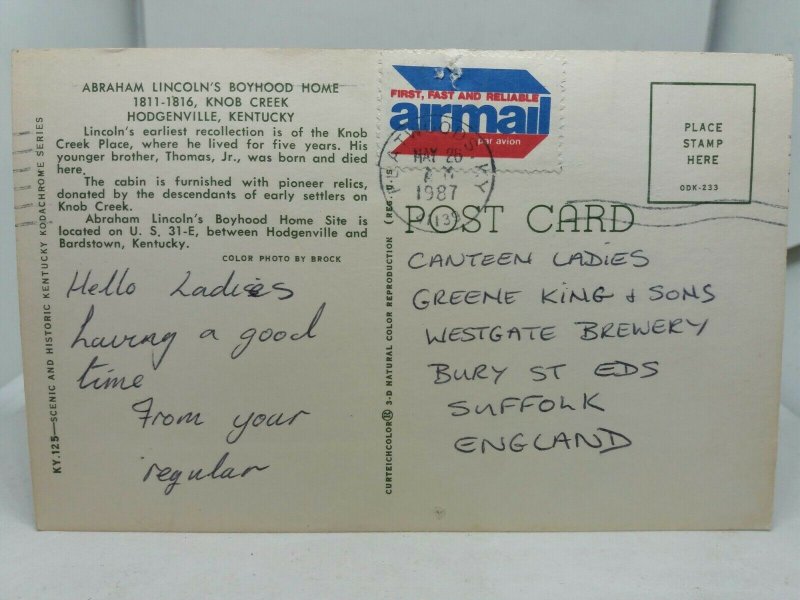 ABRAHAM LINCOLN'S BOYHOOD HOME
1811-1816, KNOB CREEK
HODGENVILLE, KENTUCKY
Lincoln's earliest recollection is of the Knob
Creek Place, where he lived for five years. His
younger brother, Thomas, Jr., was born and died
here.
The cabin is furnished with pioneer relics,
donated by the descendants of early settlers on
Knob Creek.
Abraham Lincoln's Boyhood Home Site is
located on U. S. 31-E, between Hodgenville and
Bardstown, Kentucky.
COLOR PHOTO BY BROCK
Hello Ladies
having a good
time
From your
regular
KY.125—SCENIC AND HISTORIC KENTUCKY KODACHROME SERIES
CURTEICHCOLOR® 3-D NATURAL COLOR REPRODUCTION (REG. U.S.
FIRST, FAST AND RELIABLE
airmail
par avion
MAY 26
1987
KY
PLACE
STAMP
HERE
ODK-233
POST CARD
CANTEEN LADIES
GREENE KING & SONS
WESTGATE BREWERY
BURY ST EDS
SUFFOLK
ENGLAND